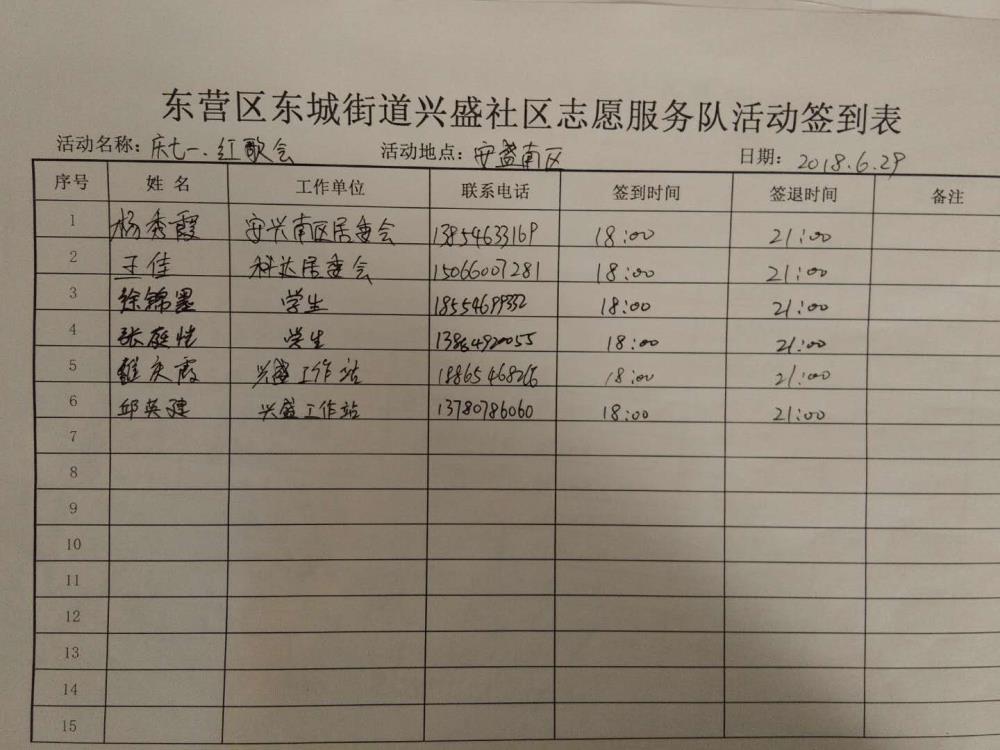 东营区东城街道兴盛社区志愿服务队活动签到表
活动名称：庆七一、红歌会 活动地点：安盛南区 日期：2018.6.29
序号 姓名 工作单位 联系电话 签到时间 签退时间 备注
1 杨秀霞 安兴南区居委会 13854633169 18:00 21:00
2 王佳 科达居委会 15066007281 18:00 21:00
3 徐锦墨 学生 18554699332 18:00 21:00
4 张庭恺 学生 18:00 21:00
5 庆霞 兴盛工作站 18:00 21:00
6 邱英建 兴盛工作站 13780786060 18:00 21:00
7
8
9
10
11
12
13
14
15